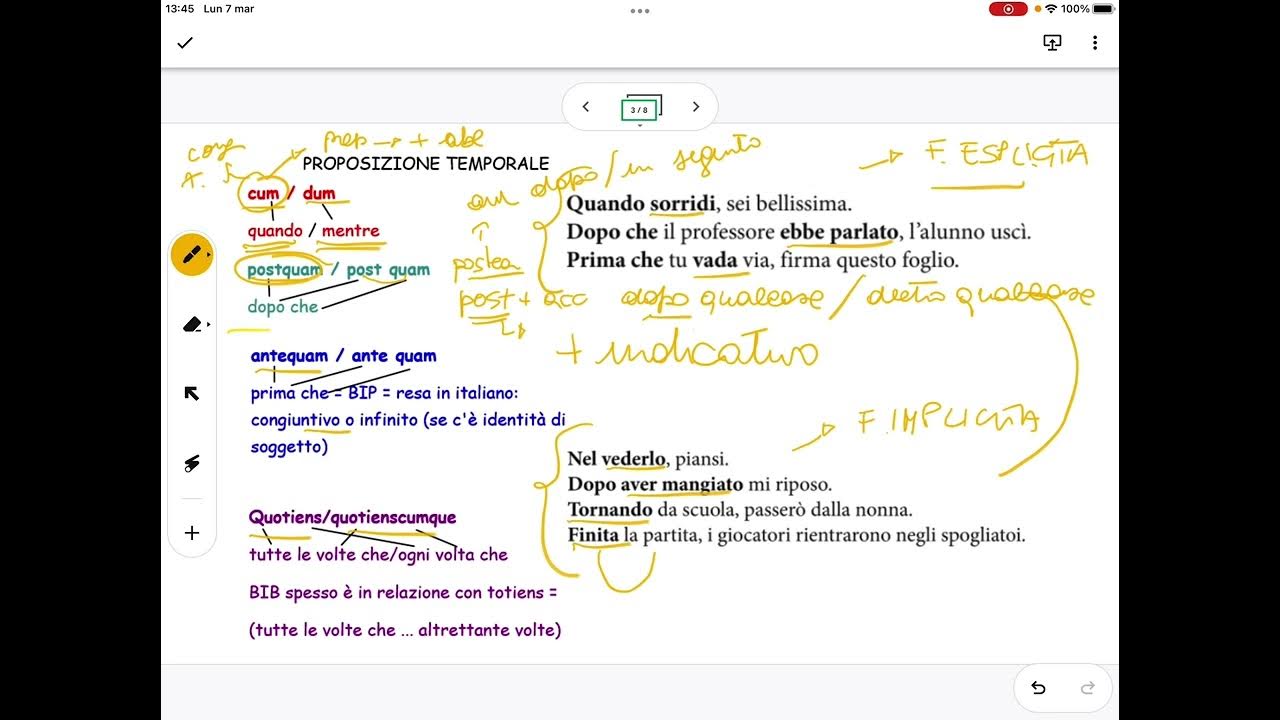 13:45 Lun 7 mar
100%
3 / 8
prep → + abl
cong
T.
PROPOSIZIONE TEMPORALE
cum / dum
quando / mentre
postquam / post quam
dopo che
antequam / ante quam
prima che = BIP = resa in italiano:
congiuntivo o infinito (se c'è identità di
soggetto)
Quotiens/quotienscumque
tutte le volte che/ogni volta che
BIB spesso è in relazione con totiens =
(tutte le volte che ... altrettante volte)
dopo / in seguito
postea
post + acc dopo qualcosa / dietro qualcosa
+ indicativo
→ F. ESPLICITA
Quando sorridi, sei bellissima.
Dopo che il professore ebbe parlato, l'alunno uscì.
Prima che tu vada via, firma questo foglio.
→ F. IMPLICITA
Nel vederlo, piansi.
Dopo aver mangiato mi riposo.
Tornando da scuola, passerò dalla nonna.
Finita la partita, i giocatori rientrarono negli spogliatoi.